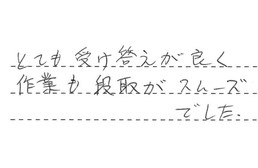 とても受け答えが良く
作業も段取がスムーズ
でした.